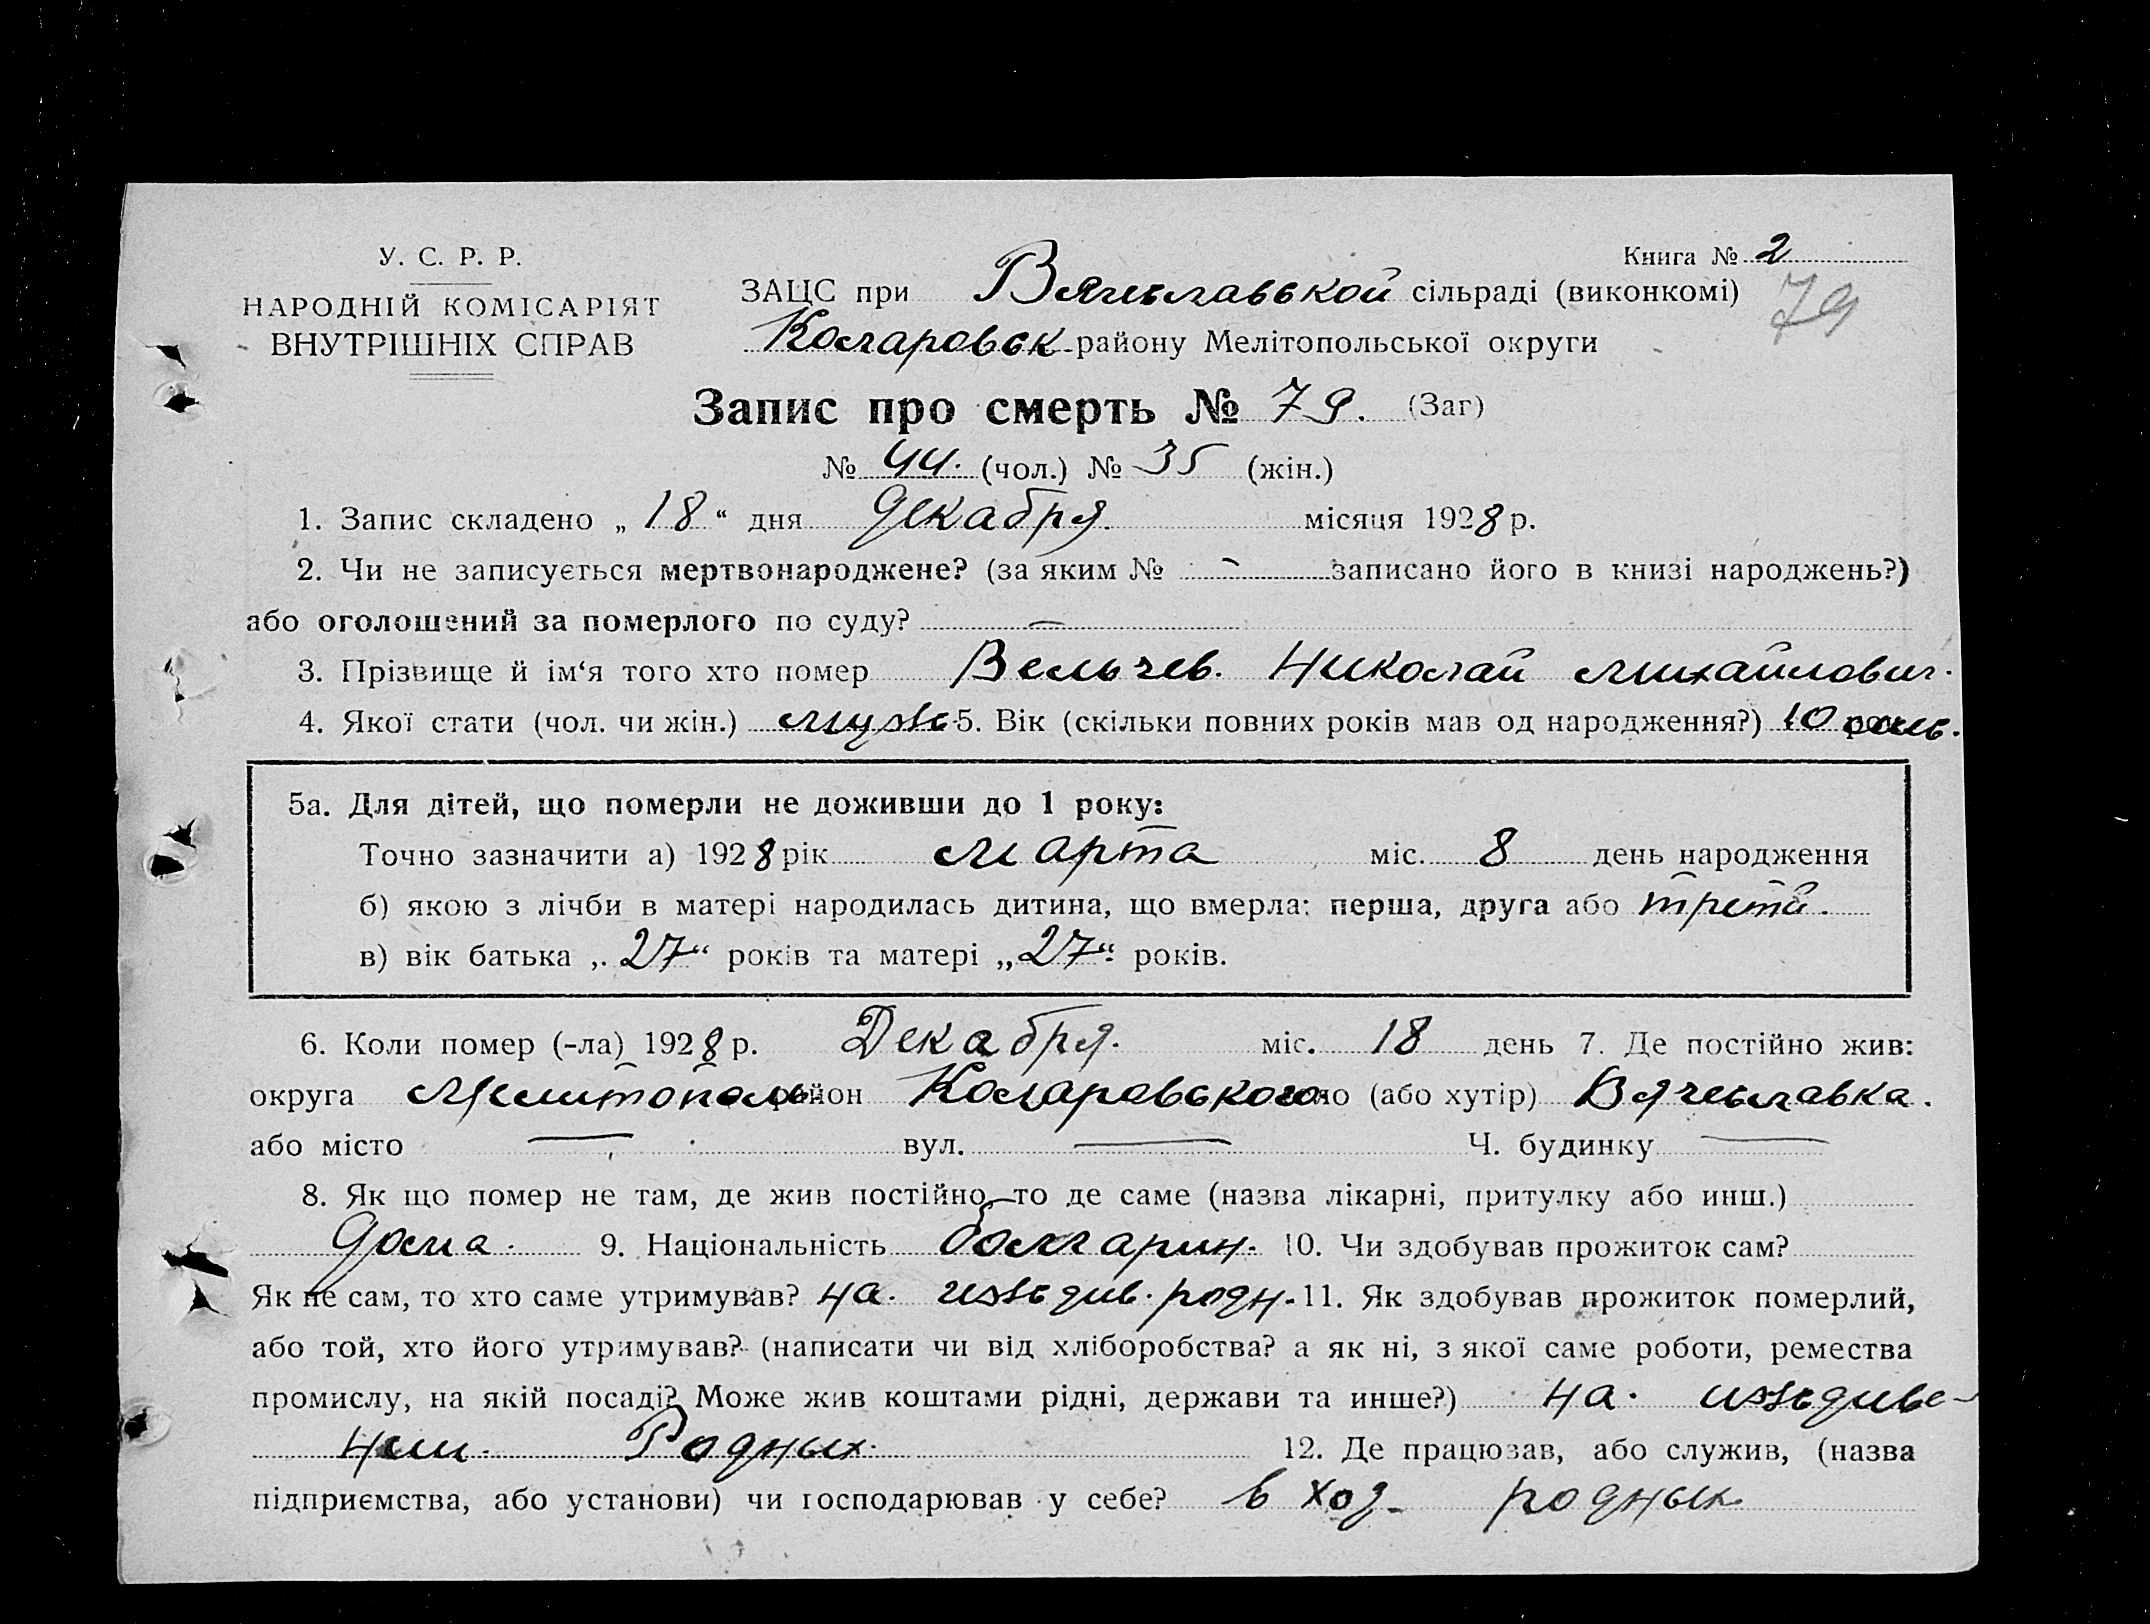 У. С. Р. Р.
НАРОДНІЙ КОМІСАРІЯТ
ВНУТРІШНІХ СПРАВ
Книга № 2
ЗАЦС при Вячеславской сільраді (виконкомі)
79
Коларовск району Мелітопольської округи
Запис про смерть № 79. (Заг)
№ 44. (чол.) № 35 (жін.)
1. Запис складено „ 18 “ дня декабря. місяця 1928 р.
2. Чи не записується мертвонароджене? (за яким № - записано його в книзі народжень?)
або оголошений за померлого по суду? —
3. Прізвище й ім‘я того хто помер Вельчев. Николай Михайлович.
4. Якої стати (чол. чи жін.) мужс 5. Вік (скільки повних років мав од народження?) 10
5а. Для дітей, що померли не доживши до 1 року:
Точно зазначити а) 1928 рік Марта міс. 8 день народження
б) якою з лічби в матері народилась дитина, що вмерла: перша, друга або третій.
в) вік батька „ 27 “ років та матері „ 27 “ років.
6. Коли помер (-ла) 1928 р. Декабря. міс. 18 день 7. Де постійно жив:
округа Мелитополь район Коларовского (або хутір) Вячеславка.
або місто — вул. — Ч. будинку —
8. Як що помер не там, де жив постійно, то де саме (назва лікарні, притулку або инш.)
дома. 9. Національність болгарин. 10. Чи здобував прожиток сам?
Як не сам, то хто саме утримував? на. иждив. родн. 11. Як здобував прожиток померлий,
або той, хто його утримував? (написати чи від хліборобства? а як ні, з якої саме роботи, ремества
промислу, на якій посаді? Може жив коштами рідні, держави та инше?) на. иждиве-
нии. Родных. 12. Де працював, або служив, (назва
підприємства, або установи) чи господарював у себе? в хоз. родных